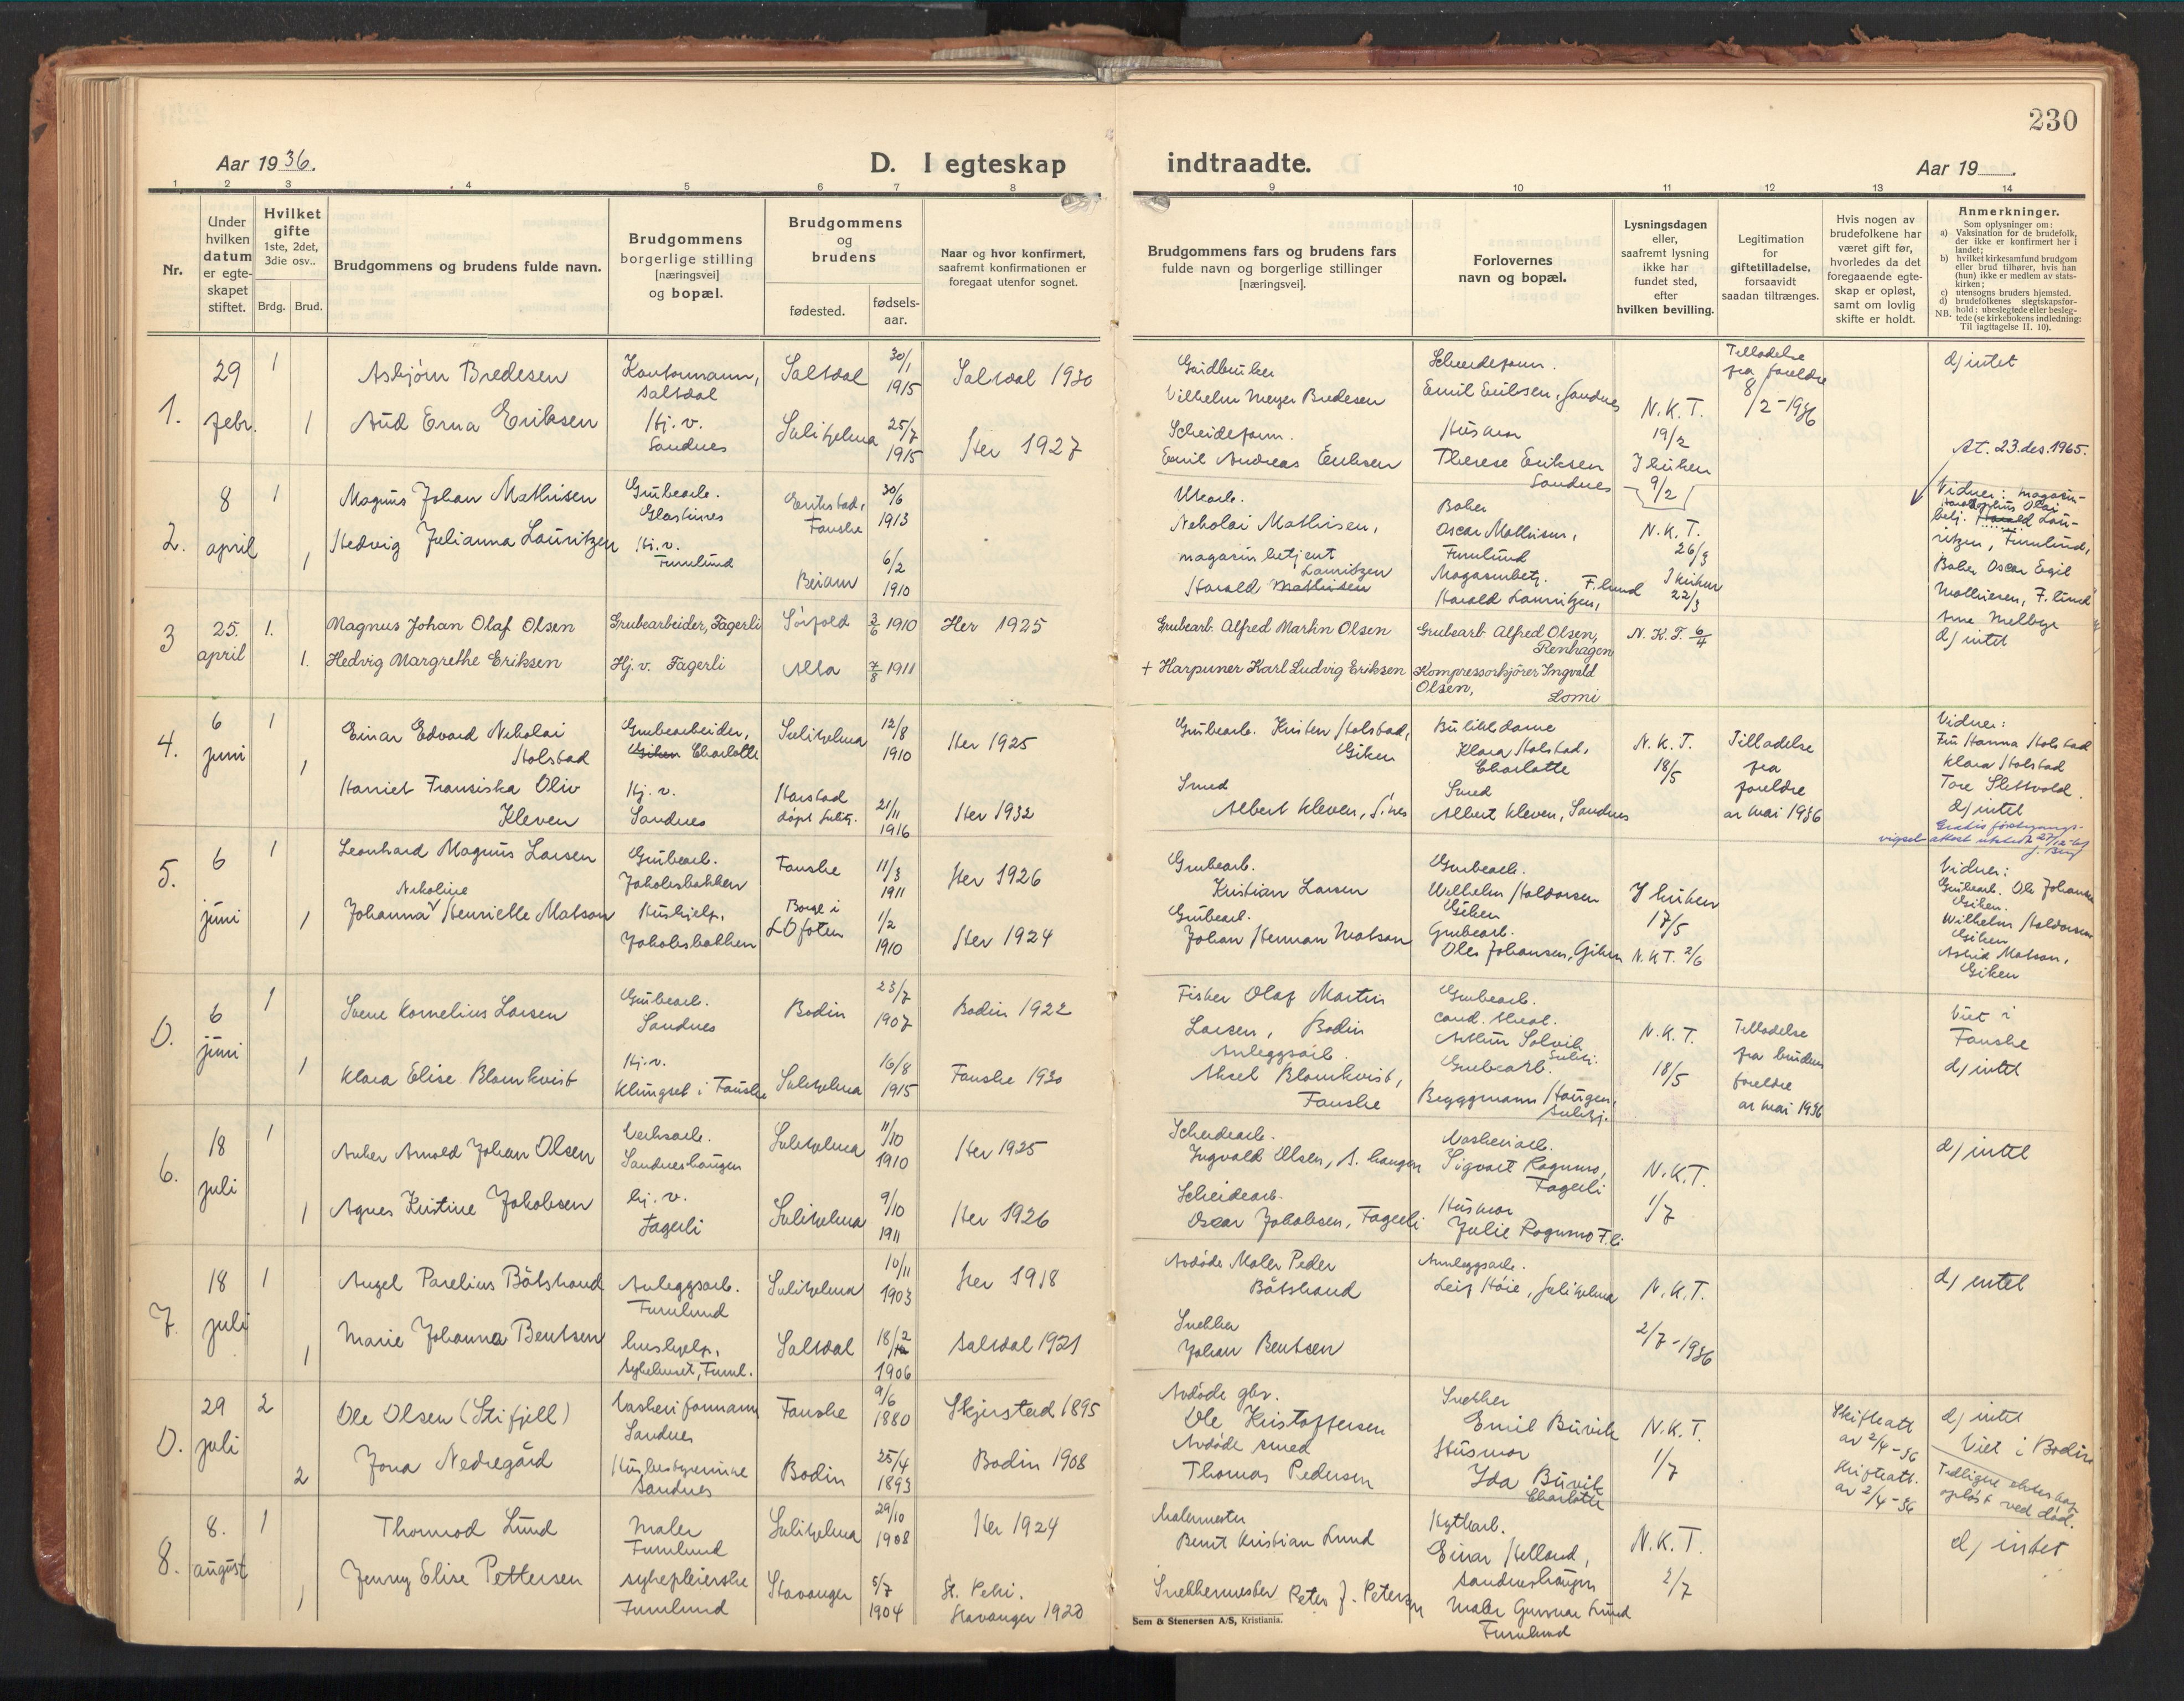 230
Aar 1936.
D. I egteskap indtraadte.
Aar 19
1 2 3 4 5 6 7 8 9 10 11 12 13 14
Nr.
Under hvilken datum er egteskapet stiftet.
Hvilket gifte
1ste, 2det, 3die osv..
Brdg. Brud.
Brudgommens og brudens fulde navn.
Brudgommens borgerlige stilling [næringsvei] og bopæl.
Brudgommens og brudens
fødested.
fødselsaar.
Naar og hvor konfirmert, saafremt konfirmationen er foregaat utenfor sognet.
Brudgommens fars og brudens fars fulde navn og borgerlige stillinger [næringsvei].
Forlovernes navn og bopæl.
Lysningsdagen eller, saafremt lysning ikke har fundet sted, efter hvilken bevilling.
Legitimation for giftetilladelse, forsaavidt saadan tiltrænges.
Hvis nogen av brudefolkene har været gift før, hvorledes da det foregaaende egteskap er opløst, samt om lovlig skifte er holdt.
Anmerkninger.
Som oplysninger om:
a) Vaksination for de brudefolk, der ikke er konfirmert her i landet;
b) hvilket kirkesamfund brudgom eller brud tilhører, hvis han (hun) ikke er medlem av statskirken;
c) utensogns bruders hjemsted.
d) brudefolkenes slegtskapsforhold: ubeslegtede eller beslegtede (se kirkebokens indledning: Til iagttagelse II. 10).
NB.
1. 29 febr. 1 Asbjørn Bredesen
Saltdal
Saltdal 30/1 1915
Saltdal 1930
Vilhelm Meyer Bredesen
Emil Eriksen, Sandnes
N.K.T. 19/2
Tilladelse fra foreldre 8/2-1936
d) intet
1 Aud Erna Eriksen
Hj. v.
Sandnes
Sulitjelma 25/7 1915
Her 1927
Emil Andreas Eriksen
Husmor
Therese Eriksen
Sandnes
I kirken 9/2
At. 23.des.1965.
2. 8 april 1 Magnus Johan Mathisen
Grubearb.
Glastunes
Fauske 30/6 1913
Nikolai Mathisen,
Baker
Oscar Mathisen,
Furulund
N.K.T. 26/3
1 Hedvig Julianna Lauritzen
Hj. v.
Furulund
Beiarn 6/2 1910
magasinbetjent
Lauritzen
Harald Mathisen
Magasinbetj.
Harald Lauritzen, F.lund
I kirken 22/3
Vidner: magasin-
betj. Harald Lau-
ritzen, Furulund,
Baker Oscar Egil
Mathisen, F.lund
d) intet
3 25. april 1. Magnus Johan Olaf Olsen
Grubearbeider, Fagerli
Sørfold 2/6 1910
Her 1925
Grubearb. Alfred Martin Olsen
Grubearb. Alfred Olsen,
Renhagen
N. K. T. 6/4
1. Hedvig Margrethe Eriksen
Hj. v. Fagerli
Alta 7/8 1911
+ Harpuner Karl Ludvig Eriksen
Kompressorkjører Ingvald
Olsen, Lomi
4. 6 juni 1 Einar Edvard Nikolai
Holstad
Grubearbeider,
Giken Charlotte
Sulitjelma 12/8 1910
Her 1925
Grubearb. Kristen Holstad,
Giken
Butikkdame
Klara Holstad,
Charlotte
N.K.T. 18/5
Tilladelse fra foreldre av mai 1936
1 Harriet Fransiska Oliv
Kleven
Hj. v.
Sandnes
Harstad
døpt Sulitj.
21/11 1916
Her 1932
Smed
Albert Kleven, S.nes
Smed
Albert Kleven, Sandnes
Vidner:
Fru Hanna Holstad
Klara Holstad
Tore Slettvold.
d) intet
5. 6 juni 1 Leonhard Magnus Larsen
Grubearb.
Jakobsbakken
Fauske 11/3 1911
Her 1926
Grubearb.
Kristian Larsen
Grubearb.
Wilhelm Haldorsen
Giken
I kirken 17/5
Nikoline
1 Johanna Henriette Matson
Hushjelp,
Jakobsbakken
Borge i
Lofoten
1/2 1910
Her 1924
Grubearb.
Johan Herman Matson
Grubearb.
Ole Johansen, Giken
N.K.T. 2/6
Vidner:
Grubearb. Ole Johansen
Giken.
Wilhelm Haldorsen
Giken
Astrid Matson,
Giken
0. 6 juni 1 Svene Kornelius Larsen
Grubearb.
Sandnes
Bodin 23/7 1907
Bodin 1922
Fisker Olaf Martin
Larsen, Bodin
Grubearb.
Arthur Solvik
Sulitj.
N.K.T. 18/5
Tilladelse fra brudens foreldre av mai 1936
Viet i
Fauske
d) intet
1 Klara Elise Blomkvist
Hj. v.
Klungset i Fauske
Sulitjelma 16/8 1915
Fauske 1930
Anleggsarb.
Aksel Blomkvist,
Fauske
Grubearb.
Bryggmann Haugen,
Sulitj.
6. 18 juli 1 Anker Arnold Johan Olsen
Verksarb.
Sandneshaugen
Sulitjelma 11/10 1910
Her 1925
Scheidearb.
Ingvald Olsen, S.haugen
Vaskeriarb.
Sigvart Rognmo,
Fagerli
N.K.T. 1/7
d) intet
1 Agnes Kristine Jakobsen
hj. v.
Fagerli
Sulitjelma 9/10 1911
Her 1926
Scheidearb.
Oscar Jakobsen, Fagerli
Husmor
Julie Rognmo F.li
7. 18 juli 1 Angel Parelius Båtstrand
Anleggsarb.
Furulund
Sulitjelma 10/11 1903
Her 1918
Avdøde Maler Peder
Båtstrand
Annleggsarb.
Leif Høie, Sulitjelma
N.K.T.
2/7-1936
d) intet
1 Marie Johanna Bentsen
hushjelp,
sykehuset, Furul.
Saltdal 18/2 1906
Saltdal 1921
Snekker
Johan Bentsen
0. 29 juli 2 Ole Olsen (Stifjell)
Vaskeriformann
Sandnes
Fauske 9/6 1880
Skjerstad 1895
Avdøde gbr.
Ole Kristoffersen
Snekker
Emil Buvik
N.K.T. 1/7
Skifteatt
av 2/4-36
d) intet
Viet i Bodin
2 Jona Nedregård
Husbestyrerinne
Sandnes
Bodin 25/4 1893
Bodin 1908
Avdøde smed
Thomas Pedersen
Husmor
Ida Buvik
Charlotte
Skifteatt.
av 2/4-36
Tidligere ekteskap
opløst ved død.
8. 8. august 1 Thormod Lund
Maler
Furulund
Sulitjelma 29/10 1908
Her 1924
Malermester
Bernt Kristian Lund
Hyttearb.
Einar Helland,
Sandneshaugen
N.K.T. 2/7
d) intet
1 Jenny Elise Pettersen
sykepleierske
Furulund
Stavanger 5/7 1904
St. Petri.
Stavanger 1920
Snekkermester Peter J. Petersen
Maler Gunnar Lund
Furulund
Sem & Stenersen A/S, Kristiania.